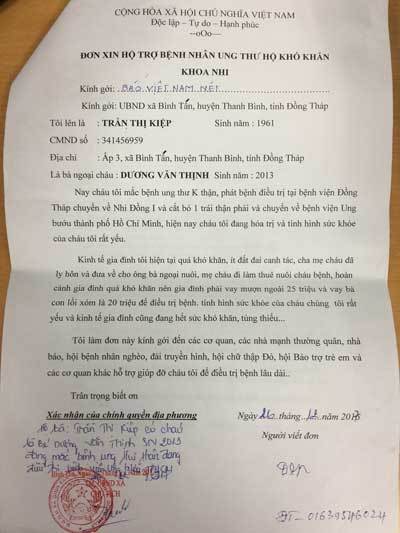 CỘNG HÒA XÃ HỘI CHỦ NGHĨA VIỆT NAM
Độc lập – Tự do – Hạnh phúc
--oOo--
ĐƠN XIN HỘ TRỢ BỆNH NHÂN UNG THƯ HỘ KHÓ KHĂN
KHOA NHI
Kính gởi: BÁO VIỆT NAM NÉT
Kính gởi: UBND xã Bình Tấn, huyện Thanh Bình, tỉnh Đồng Tháp
Tôi tên là : TRẦN THỊ KIỆP Sinh năm : 1961
CMND số : 341456959
Địa chỉ : Ấp 3, xã Bình Tấn, huyện Thanh Bình, tỉnh Đồng Tháp
Là bà ngoại cháu : DƯƠNG VĂN THỊNH Sinh năm : 2013
Nay cháu tôi mắc bệnh ung thư K thận, phát bệnh điều trị tại bệnh viện Đồng
Tháp chuyển về Nhi Đồng I và cắt bỏ 1 trái thận phải và chuyển về bệnh viện Ung
bướu thành phố Hồ Chí Minh, hiện nay cháu tôi đang hóa trị và tình hình sức khỏe
của cháu tôi rất yếu.
Kinh tế gia đình tôi hiện tại quá khó khăn, ít đất đai canh tác, cha mẹ cháu đã
ly hôn và đưa về cho ông bà ngoại nuôi, mẹ cháu đi làm thuê nuôi cháu bệnh, hoàn
cảnh gia đình quá khó khăn nên gia đình phải vay mượn ngoài 25 triệu và vay bà
con lối xóm là 20 triệu để điều trị bệnh. tình hình sức khỏe của cháu chúng tôi rất
yếu và kinh tế gia đình cũng đang hết sức khó khăn, túng thiếu...
Tôi làm đơn này kính gởi đến các cơ quan, các nhà mạnh thường quân, nhà
báo, hội bệnh nhân nghèo, đài truyền hình, hội chữ thập Đỏ, hội Bảo trợ trẻ em và
các cơ quan khác hỗ trợ giúp đỡ cháu tôi để điều trị bệnh lâu dài..
Trân trọng biết ơn
Xác nhận của chính quyền địa phương Ngày 26 tháng 12 năm 2017
Người viết đơn
Trần Thị Kiệp có cháu
Dương Văn Thịnh SN 2013
đang mắc bệnh ung thư thận đang
TM. UBND XÃ
ĐT- 01639546024